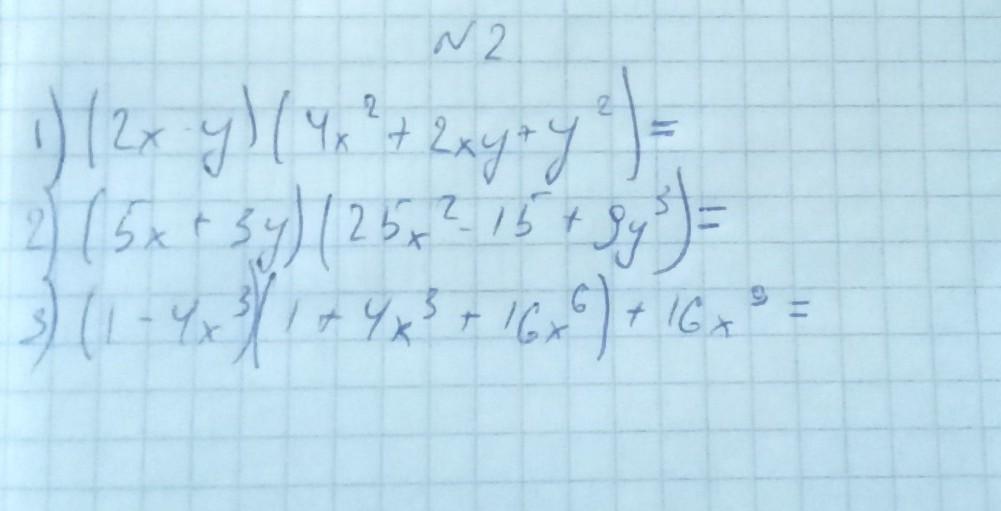 №2
1) (2x-y)(4x²+2xy+y²)=
2) (5x+3y)(25x²-15+9y³)=
3) (1-4x³)(1+4x³+16x⁶)+16x⁹=